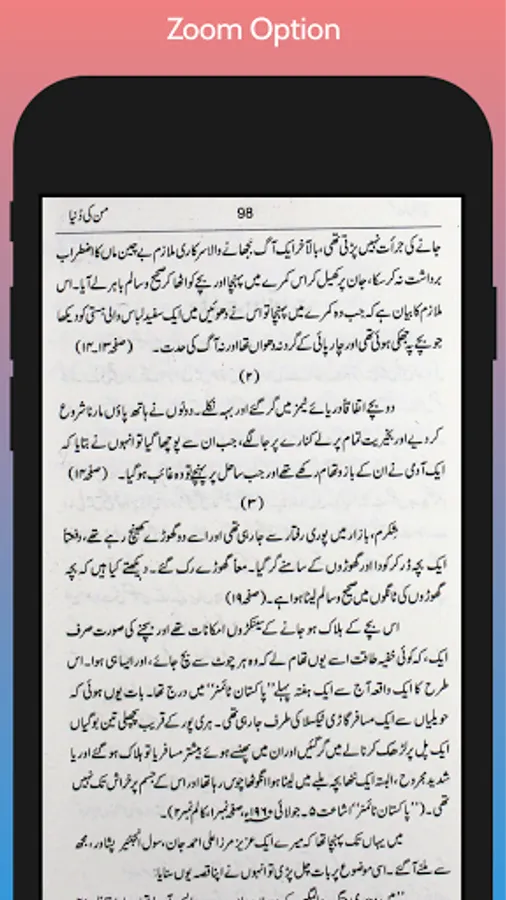 Zoom Option
من کی دُنیا
98
جانے کی جرأت نہیں پڑتی تھی، بالآخر ایک آگ بجھانے والا سرکاری ملازم بے چین ماں کا اضطراب
برداشت نہ کر سکا، جان پر کھیل کر اس کمرے میں پہنچا اور بچے کو اٹھا کر صحیح و سالم باہر لے آیا۔ اس
ملازم کا بیان ہے کہ جب وہ کمرے میں پہنچا تو اس نے دھوئیں میں ایک سفید لباس والی ہستی کو دیکھا
جو بچے پر جھکی ہوئی تھی اور چارپائی کے گرد نہ دھواں تھا اور نہ آگ کی حدت۔ (صفحہ ۱۳۔۱۴)
(۲)
دو بچے اتفاقاً دریائے ٹیمز میں گر گئے اور بہہ نکلے۔ دونوں نے ہاتھ پاؤں مارنا شروع
کر دیے اور بخیریت تمام پرلے کنارے پر جا لگے، جب ان سے پوچھا گیا تو انہوں نے بتایا کہ
ایک آدمی نے ان کے بازو تھام رکھے تھے اور جب ساحل پر پہنچے تو وہ غائب ہو گیا۔ (صفحہ ۱۴)
(۳)
شکرم، بازار میں پوری رفتار سے جا رہی تھی اور اسے دو گھوڑے کھینچ رہے تھے، دفعتاً
ایک بچہ ڈر کر کودا اور گھوڑوں کے سامنے گر گیا۔ معاً گھوڑے رک گئے۔ دیکھتے کیا ہیں کہ بچہ
گھوڑوں کی ٹانگوں میں صحیح و سالم لیٹا ہوا ہے۔ (صفحہ ۱۹)
اس بچے کے ہلاک ہو جانے کے سینکڑوں امکانات تھے اور بچنے کی صورت صرف
ایک، کہ کوئی خفیہ طاقت اسے یوں تھام لے کہ وہ ہر چوٹ سے بچ جائے، اور ایسا ہی ہوا۔ اس
طرح کا ایک واقعہ آج سے ایک ہفتہ پہلے "پاکستان ٹائمز" میں درج تھا۔ بات یوں ہوئی کہ
حویلیاں سے ایک مسافر گاڑی ٹیکسلا کی طرف جا رہی تھی۔ ہری پور کے قریب پچھلی تین بوگیاں
ایک پل پر لڑھک کر نالے میں گر گئیں اور ان میں پھنسے ہوئے بیشتر مسافر یا تو ہلاک ہو گئے اور یا
شدید مجروح، البتہ ایک ننھا بچہ ملبے میں لیٹا ہوا انگوٹھا چوس رہا تھا اور اس کے جسم پر خراش تک نہیں
تھی۔ ("پاکستان ٹائمز" اشاعت ۵۔ جولائی ۱۹۶۰ء، صفحہ نمبر ۱، کالم نمبر ۲)۔
میں یہاں تک پہنچا تھا کہ میرے ایک عزیز مرزا علی احمد جان، سول انجینئر پشاور، مجھ
سے ملنے آ گئے۔ اسی موضوع پر بات چل پڑی تو انہوں نے اپنا قصہ یوں سنایا: